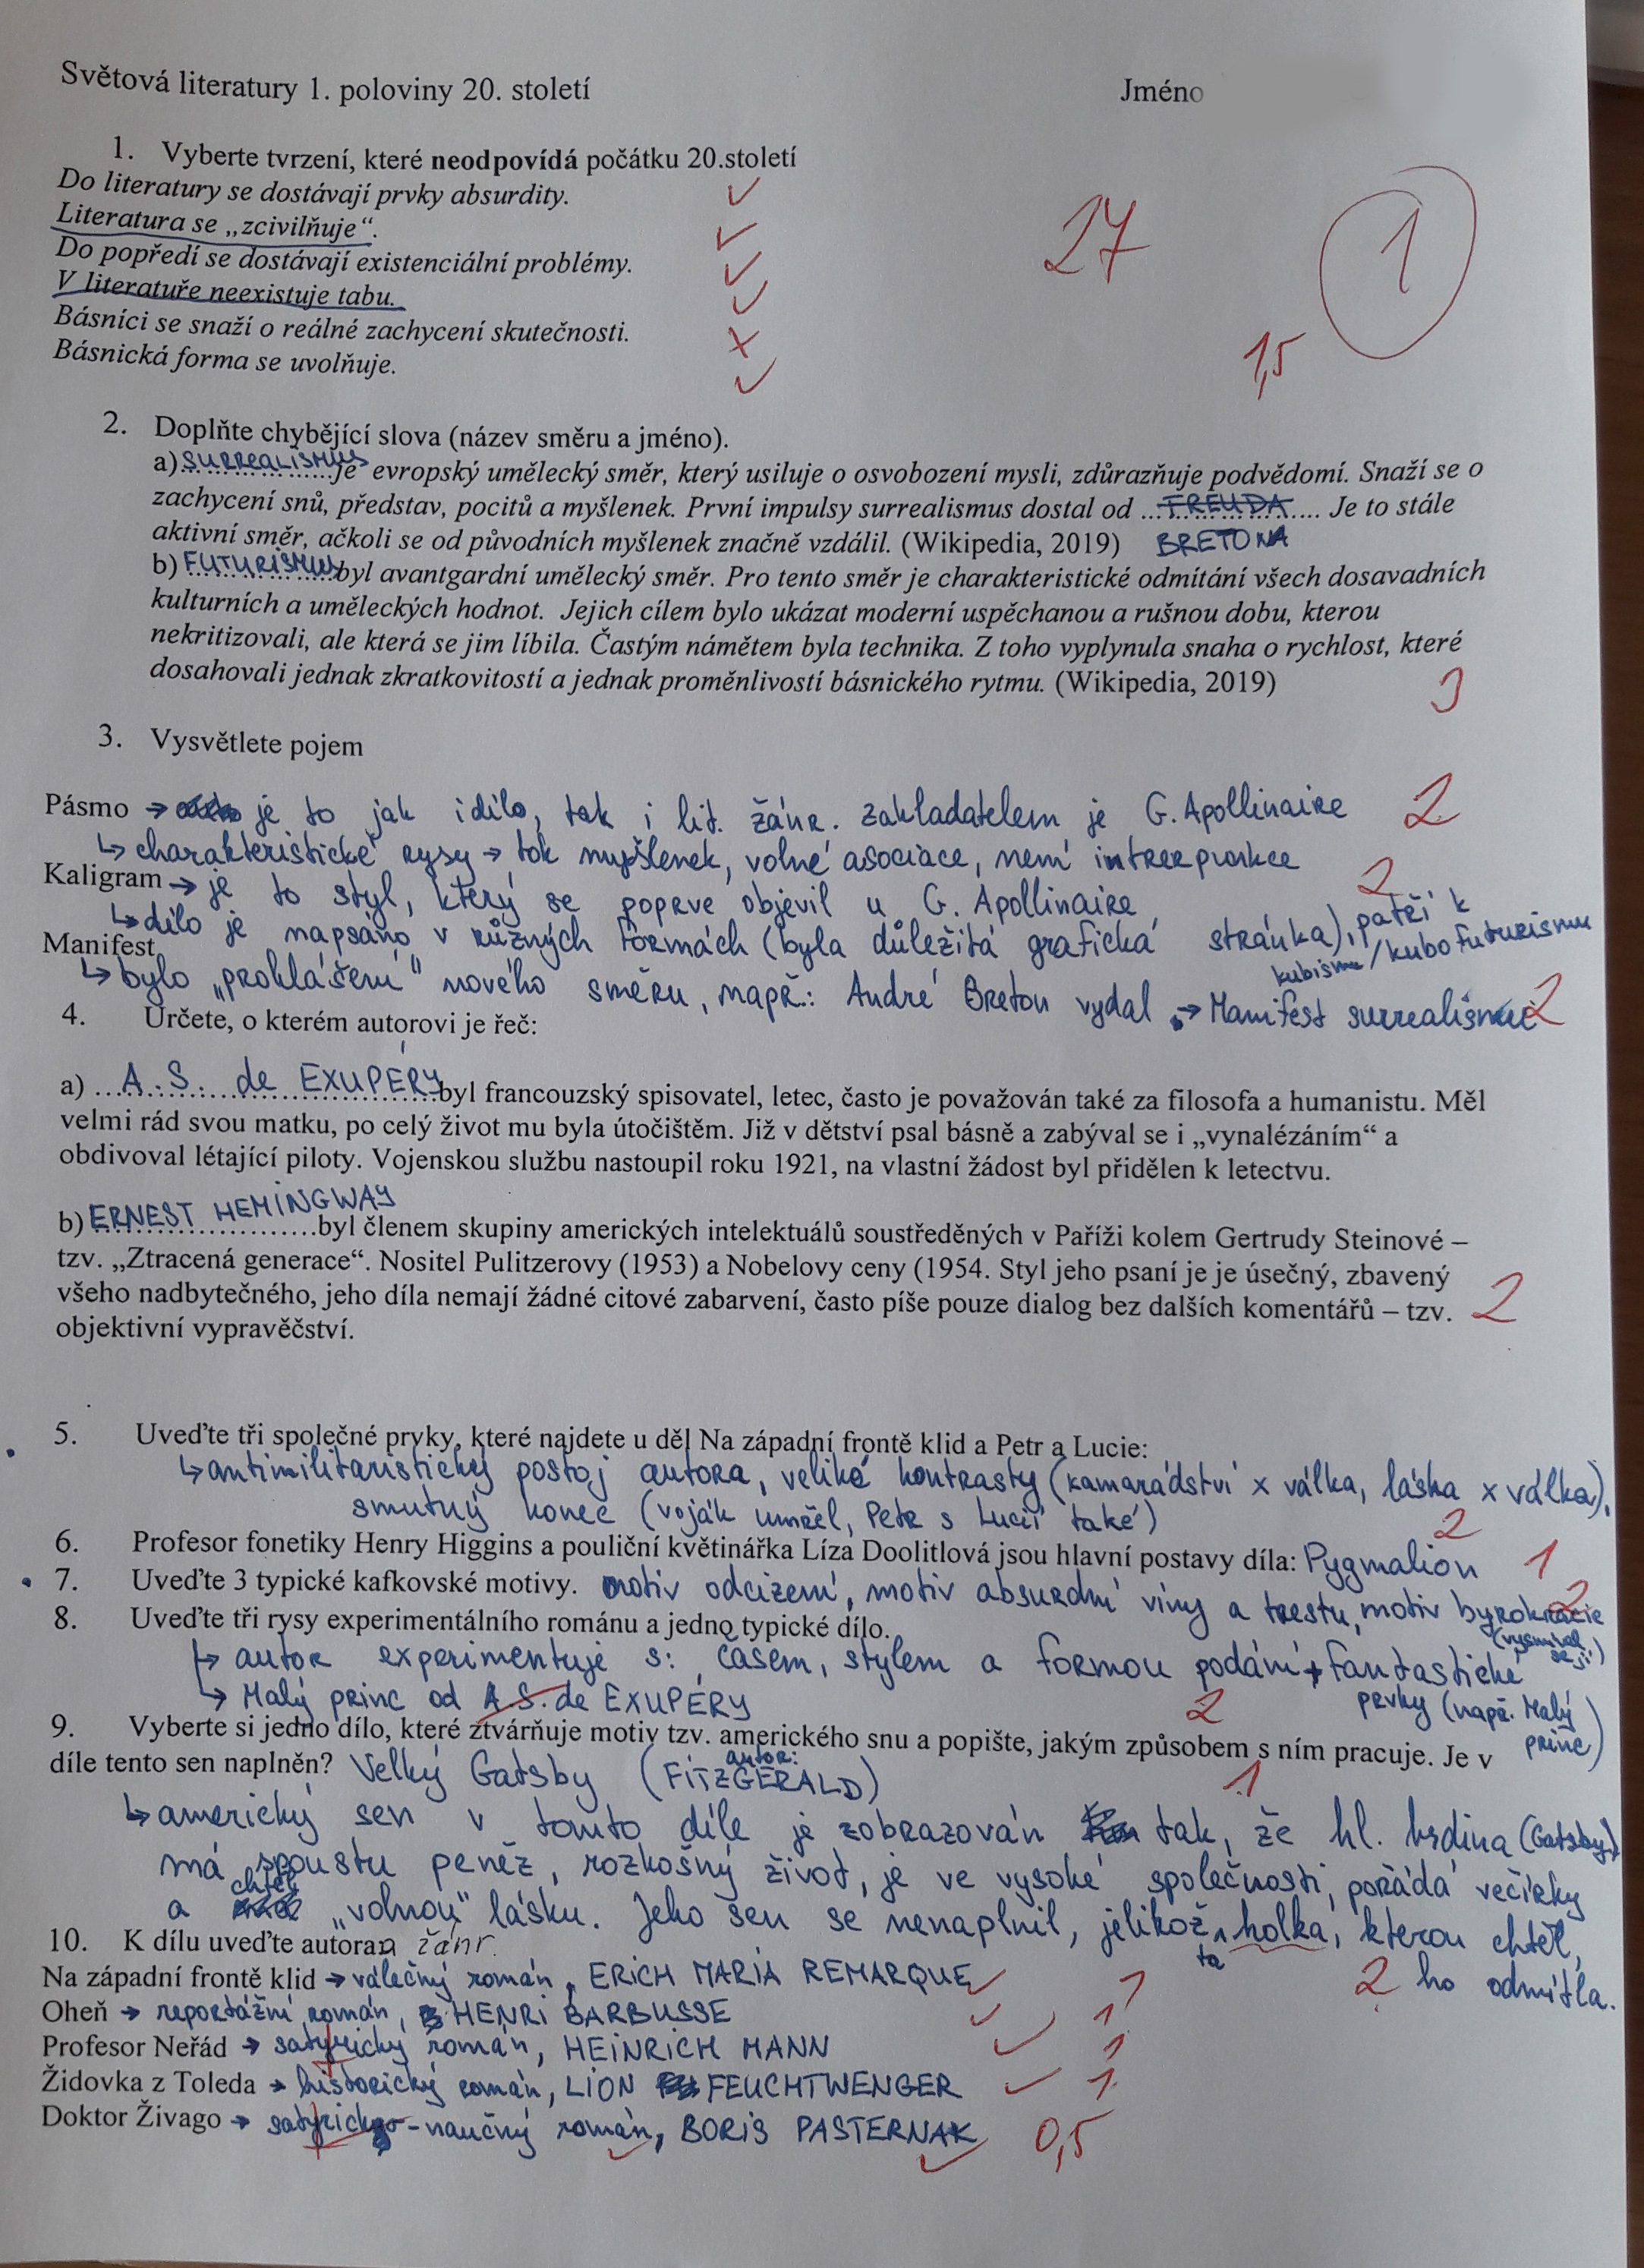 Světová literatury 1. poloviny 20. století
Jméno
1. Vyberte tvrzení, které neodpovídá počátku 20.století
Do literatury se dostávají prvky absurdity.
Literatura se „zcivilňuje“.
Do popředí se dostávají existenciální problémy.
V literatuře neexistuje tabu.
Básníci se snaží o reálné zachycení skutečnosti.
Básnická forma se uvolňuje.
27
1
1,5
2. Doplňte chybějící slova (název směru a jméno).
a) SURREALISMUS je evropský umělecký směr, který usiluje o osvobození mysli, zdůrazňuje podvědomí. Snaží se o
zachycení snů, představ, pocitů a myšlenek. První impulsy surrealismus dostal od ...FREUDA.... Je to stále
aktivní směr, ačkoli se od původních myšlenek značně vzdálil. (Wikipedia, 2019) BRETONA
b) FUTURISMUS byl avantgardní umělecký směr. Pro tento směr je charakteristické odmítání všech dosavadních
kulturních a uměleckých hodnot. Jejich cílem bylo ukázat moderní uspěchanou a rušnou dobu, kterou
nekritizovali, ale která se jim líbila. Častým námětem byla technika. Z toho vyplynula snaha o rychlost, které
dosahovali jednak zkratkovitostí a jednak proměnlivostí básnického rytmu. (Wikipedia, 2019)
3
3. Vysvětlete pojem
Pásmo → je to jak i dílo, tak i lit. žánr. zakladatelem je G. Apollinaire 2
↳ charakteristické rysy → tok myšlenek, volné asociace, není interpunkce
Kaligram → je to styl, který se poprve objevil u G. Apollinaire 2
↳ dílo je napsáno v různých formách (byla důležitá grafická stránka), patří k
kubismu/kubofuturismu
Manifest
↳ bylo „prohlášení“ nového směru, např.: André Breton vydal → Manifest surrealismu 2
4. Určete, o kterém autorovi je řeč:
a) A. S. de EXUPÉRY byl francouzský spisovatel, letec, často je považován také za filosofa a humanistu. Měl
velmi rád svou matku, po celý život mu byla útočištěm. Již v dětství psal básně a zabýval se i „vynalézáním“ a
obdivoval létající piloty. Vojenskou službu nastoupil roku 1921, na vlastní žádost byl přidělen k letectvu.
b) ERNEST HEMINGWAY byl členem skupiny amerických intelektuálů soustředěných v Paříži kolem Gertrudy Steinové –
tzv. „Ztracená generace“. Nositel Pulitzerovy (1953) a Nobelovy ceny (1954. Styl jeho psaní je je úsečný, zbavený
všeho nadbytečného, jeho díla nemají žádné citové zabarvení, často píše pouze dialog bez dalších komentářů – tzv. 2
objektivní vypravěčství.
5. Uveďte tři společné prvky, které najdete u děl Na západní frontě klid a Petr a Lucie:
↳ antimilitaristický postoj autora, veliké kontrasty (kamarádství x válka, láska x válka),
smutný konec (voják umřel, Petr s Lucií také) 2
6. Profesor fonetiky Henry Higgins a pouliční květinářka Líza Doolitlová jsou hlavní postavy díla: Pygmalion 1
7. Uveďte 3 typické kafkovské motivy. motiv odcizení, motiv absurdní viny a trestu, motiv byrokracie 2
(vysmíval se jí)
8. Uveďte tři rysy experimentálního románu a jedno typické dílo.
↳ autor experimentuje s: časem, stylem a formou podání + fantastické
prvky (např. Malý princ)
↳ Malý princ od A.S. de EXUPÉRY 2
9. Vyberte si jedno dílo, které ztvárňuje motiv tzv. amerického snu a popište, jakým způsobem s ním pracuje. Je v
díle tento sen naplněn? Velký Gatsby (autor: FITZGERALD) 1
↳ americký sen v tomto díle je zobrazován tak, že hl. hrdina (Gatsby)
má spoustu peněz, rozkošný život, je ve vysoké společnosti, pořádá večírky
a chtěl „volnou“ lásku. Jeho sen se nenaplnil, jelikož ta holka, kterou chtěl,
ho odmítla. 2
10. K dílu uveďte autora a žánr.
Na západní frontě klid → válečný román, ERICH MARIA REMARQUE 1
Oheň → reportážní román, HENRI BARBUSSE 1
Profesor Neřád → satyrický román, HEINRICH MANN 1
Židovka z Toleda → historický román, LION FEUCHTWENGER 1
Doktor Živago → satyricko-naučný román, BORIS PASTERNAK 0,5